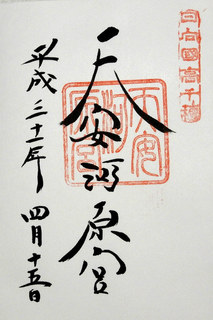 日向國高千穂
天安河原宮
平成三十一年 四月十五日